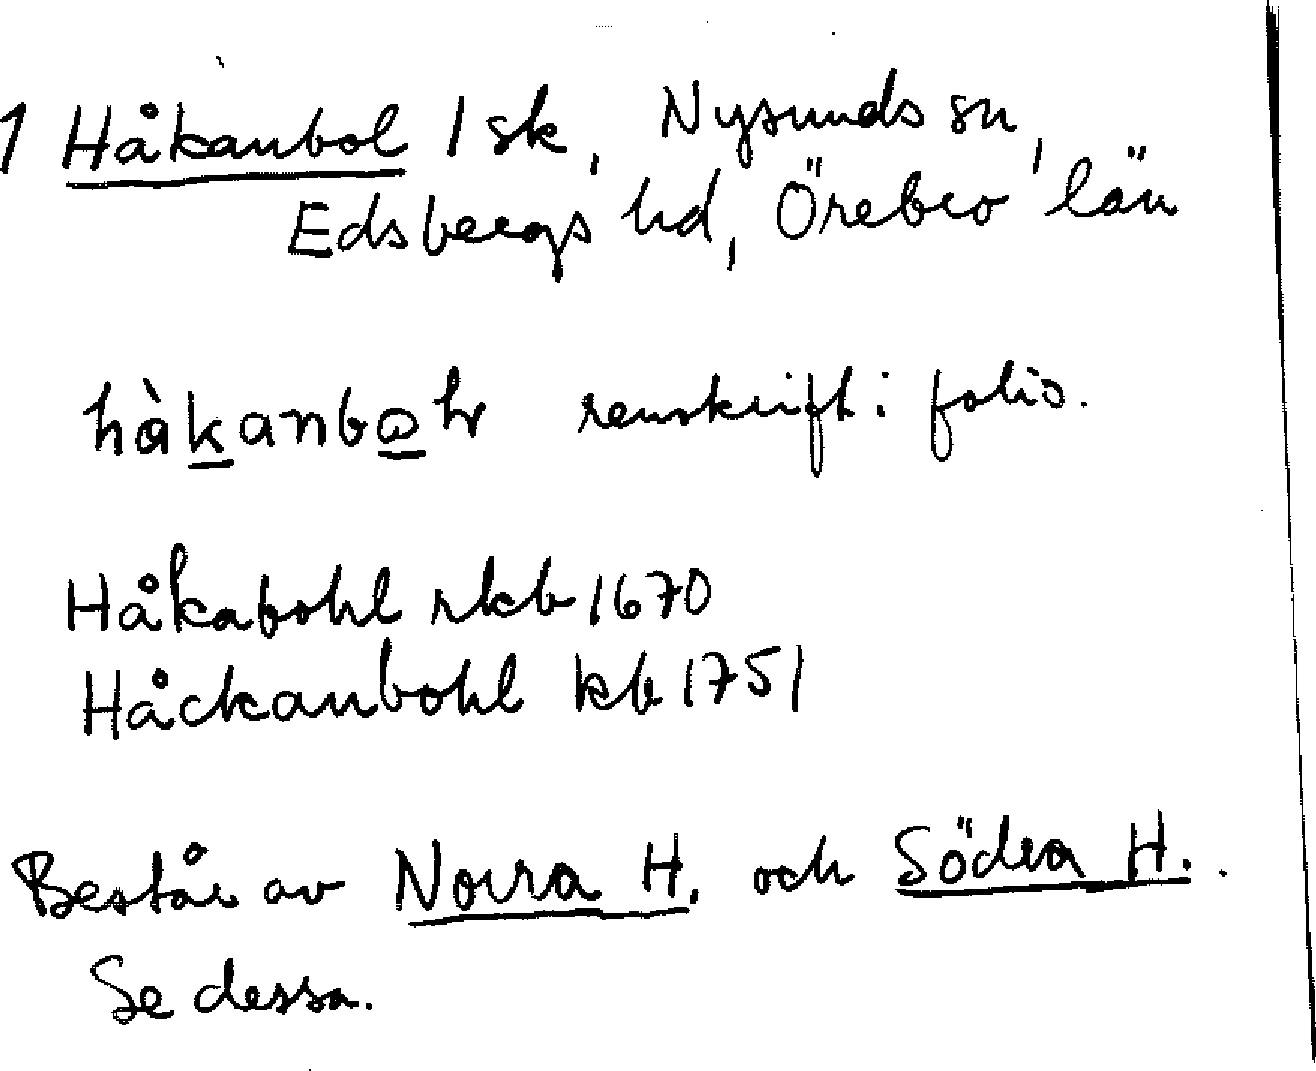 1 Håkanbol 1 sk, Nysunds sn,
Edsbergs hd, Örebro län
hàkanbꝏhr renskrift i folio.
Håkabohl rkb 1670
Håckanbohl kb 1751
Består av Norra H. och Södra H.
Se dessa.